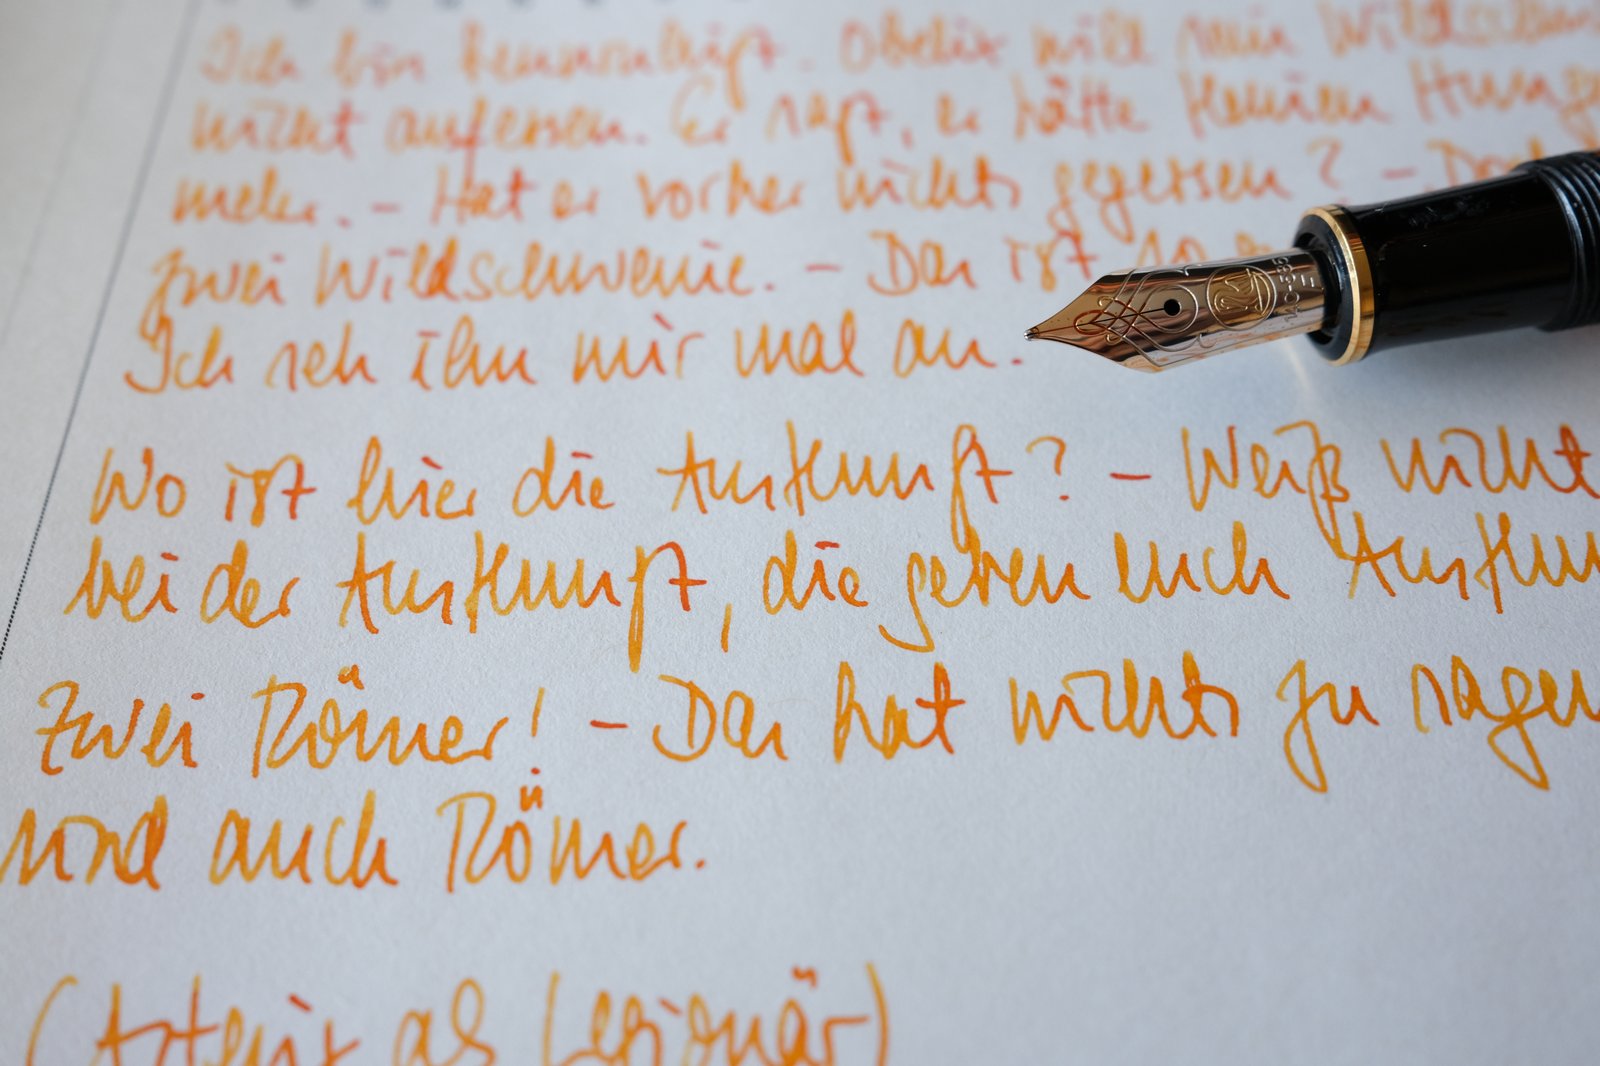 Ich bin beunruhigt. Obelix will sein Wildschwein
nicht aufessen. Er sagt, er hätte keinen Hunger
mehr. – Hat er vorher nichts gegessen? – Doch
zwei Wildschweine. – Das ist so
Ich seh ihn mir mal an.
Wo ist hier die Auskunft? – Weiß nicht
bei der Auskunft, die geben euch Auskun
Zwei Römer! – Das hat nichts zu sagen
sind auch Römer.
(Asterix als Legionär)
14C-585